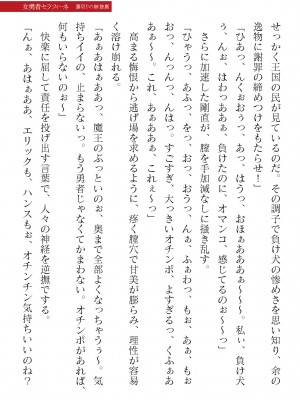 女勇者セラフィーネ
せっかく王国の民が見ているのだ。その調子で負け犬の惨めさを思い知り、余の
逸物に謝罪の締めつけをもたらせ！」
「ひあっ、んくぉおぅっ、あっ、はうっ、おほぉああぁぁ〜〜！　私ぃ、負け犬
ぅ、んぉ、はわっああぁ、負けたのに、オマンコ、感じてるのぉ〜〜っ」
さらに加速した剛直が、膣を手加減なしに掻き乱す。
「ひゃうっ、あふっ、をっ、おっ、おうっ、んぅ、ふぁわっ、もぉ、あぁ、も
おっ、んっんっ、んはっ。すごすぎ、大っきいオチンポ、よすぎるっ、くふぁあ
ぁあ〜、これ、あぁああぁ、これぇ〜っ」
高まる悔恨から逃げ場を求めるように、疼く膣穴で甘美が膨らみ、理性が容易
く溶け崩れる。
「あぁあはぁああっ、魔王のぶっといのぉ、奥まで全部よくなっちゃうぅ〜。気
持ちイイの、止まらないっ。もう勇者じゃなくてかまわない。オチンポがあれば、
何もいらないのぉ〜」
快楽に屈して責任を投げ出す言葉で、人々の神経を逆撫でする。
「んぁ、あはぁああ、エリックも、ハンスもぉ、オチンチン気持ちいいのね？